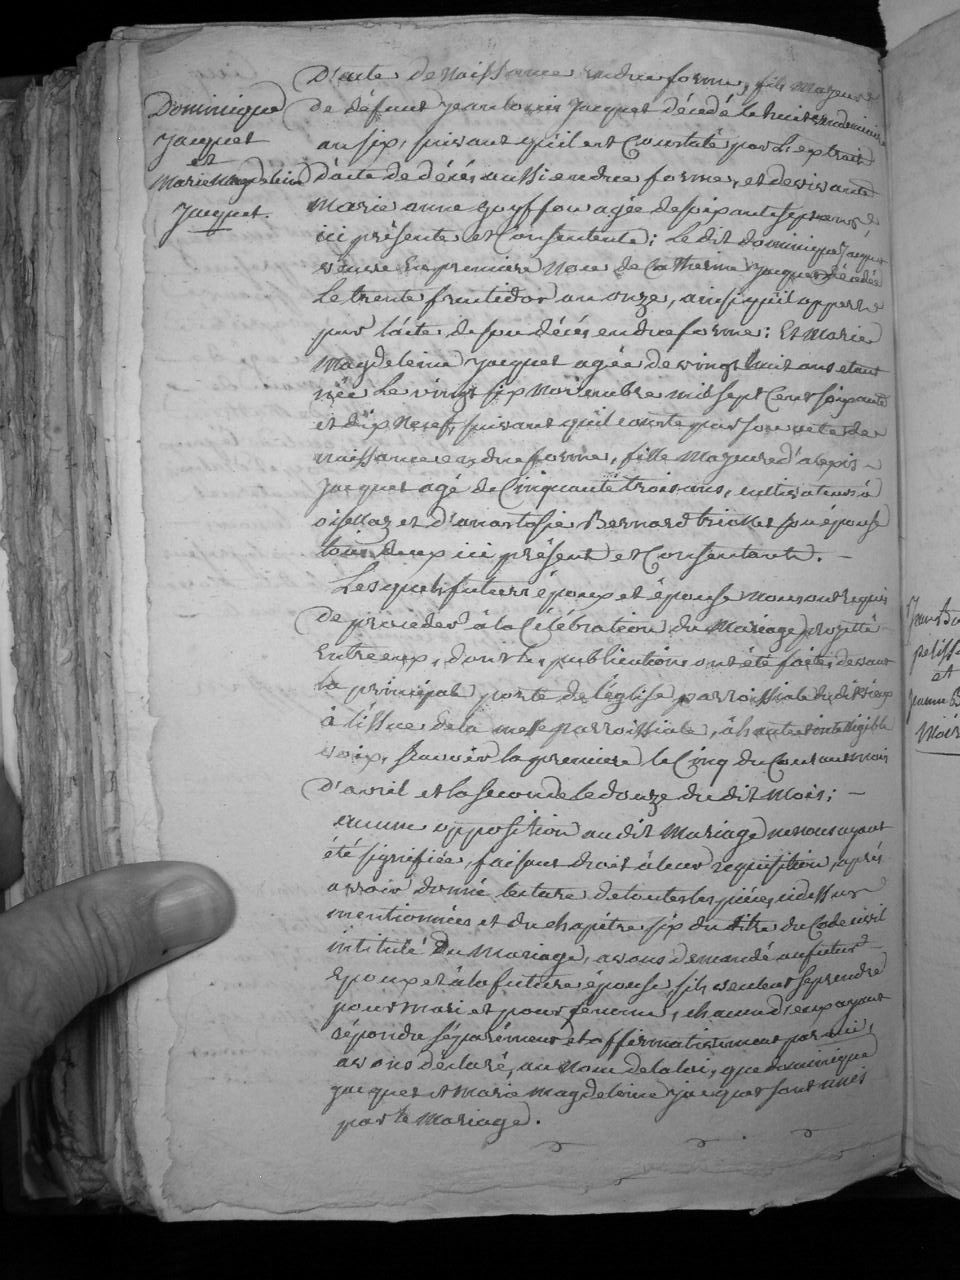 Dominique
Jacquet
et
Marie Magdeleine
Jacquet.
D'acte de Naissance en due forme, fils Majeur
de défunt jean louis jacquet décédé le huit vendemiaire
an six, suivant qu'il est Constaté par L'extrait
D'acte de décés aussi en due forme, et de vivante
Marie anne goyffon agée de soixante sept ans
ici présente et Consentente; Le dit dominique jacquet
veuve En premiere Noce de Catherine jacquet décédée
Le trente fructidor an onze, ainsi qu'il appert
par l'acte de son décés en due forme: Et Marie
Magdeleine jacquet agée de vingt huit ans etant
née Le vingt six Novembre mil sept Cent soixante
et dix Neuf, suivant qu'il conste par son acte de
naissance en due forme, fille Majeure d'alexis
jacquet agé de Cinquante trois ans, cultivateur à
oisellaz et d'anastasie Bernard son épouse
tous deux ici présent et Consentants.
Lesquels futurs époux et épouse Nous ont requis
De procéder à la Célébration du Mariage projetté
Entre eux, dont les publications ont été faites devant
la principale porte de l'église parroissiale du dit
à l'issue de la messe parroissiale, à haute et intelligible
voix, sçavoir la premiere le Cinq du Courant mois
D'avril et la seconde le douze du dit Mois;
aucune opposition au dit Mariage ne nous ayant
été signifiée, faisant droit à leur requisition, aprés
avoir donné lecture de toutes les piéces cidessus
mentionnées et du chapitre six du titre du Code civil
intitulé Du Mariage, avons demandé au futur
Epoux et à la future épouse, s'ils veulent se prendre
pour Mari et pour femme, chacun d'eux ayant
répondu séparément et affirmativement
avons déclaré, au Nom de la loi, que dominique
jacquet et Marie Magdeleine jacquet sont unis
par le Mariage.
et